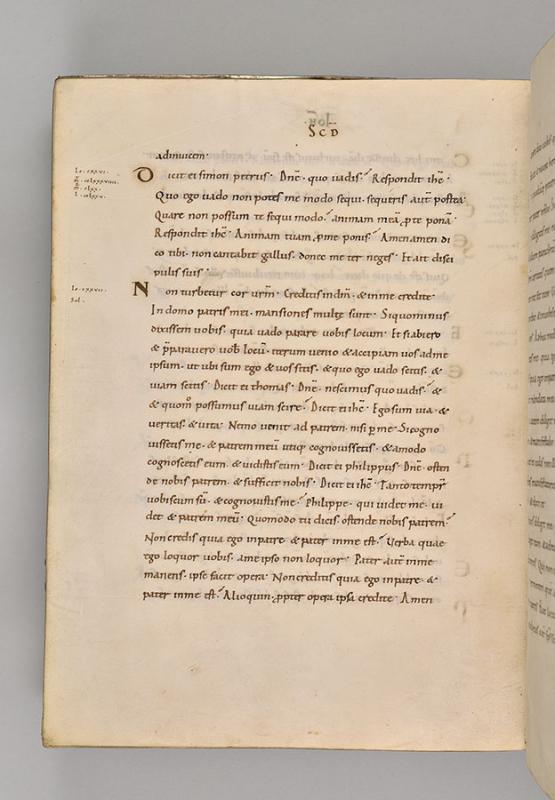 SCD
adinuicem·
Dicit ei simon petrus· Dn̄e· quo uadis? Respondit ihc̄·
Quo ego uado non potes me modo sequi· sequeris aut̄ postea·
Quare non possum te sequi modo? animam meā ꝓ te ponā·
Respondit ihc̄· Animam tuam ꝓ me ponis? Amen amen di
co tibi· non cantabit gallus· donec me ter neges· Et ait disci
pulis suis·
Non turbetur cor urm̄· Creditis indm̄· & inme credite·
In domo patris mei· mansiones multę sunt· Siquominus
dixissem uobis· quia uado parare uobis locum· Et si abiero
& p̄parauero uob̄ locū· iterum uenio & accipiam uos adme
ipsum· ut ubi sum ego & uos sitis· & quo ego uado scitis· &
uiam scitis· Dicit ei thomas· Dn̄e· nescimus quo uadis? &
& quom̄ possumus uiam scire? Dicit ei ihc̄· Ego sum uia· &
ueritas· & uita· Nemo uenit ad patrem· nisi p̄ me· Si cogno
uissetis me· & patrem meū utiq; cognouissetis· & amodo
cognoscetis eum· & uidistis eum· Dicit ei philippus· Dn̄e· osten
de nobis patrem· & sufficit nobis· Dicit ei ihc̄· Tanto tempr̄
uobiscum sū· & cognouistis me? Philippe· qui uidet me· ui
det & patrem meū· Quomodo tu dicis· ostende nobis patrem?
Non credis quia ego inpatre· & pater inme est? Verba quae
ego loquor uobis· ame ipso non loquor· Pater aut̄ inme
manens· ipse facit opera· Non creditis quia ego inpatre· &
pater inme est? Alioquin· ꝓpter opera ipsa credite· Amen